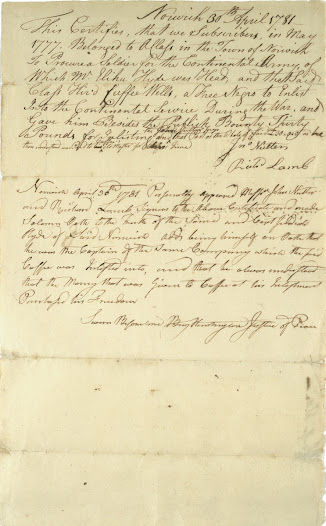 Norwich 30th April 1781
This Certifies, that we Subscribers, in May
1777, Belonged to a Class in the Town of Norwich
To Procure a Soldier for the Continental Army, of
Which Mr Elisha Hyde was Head, and that said
Class Hir'd Cuffee Wells, a Free Negro to Enlist
Into the Continental Service During the War, and
Gave him Besides the Publick Bounty Thirty
Pounds for Inlisting
Jno Nutter
Richd Lamb
Norwich April 30th 1781 Personally appeared Messrs John Nutter
and Richard Lamb Signers to the above Certificate and made
Solemn Oath to the Truth of the Same and Capt
Hyde of Said Norwich also being Sworn on Oath that
he was the Captain of the Same Company which the said
Cuffee was Inlisted into, and that he always understood
that the Money that was Given to Cuffee at his Inlistment
Purchased his Freedom
Sworn Before me Benj Huntington Justice of Peace